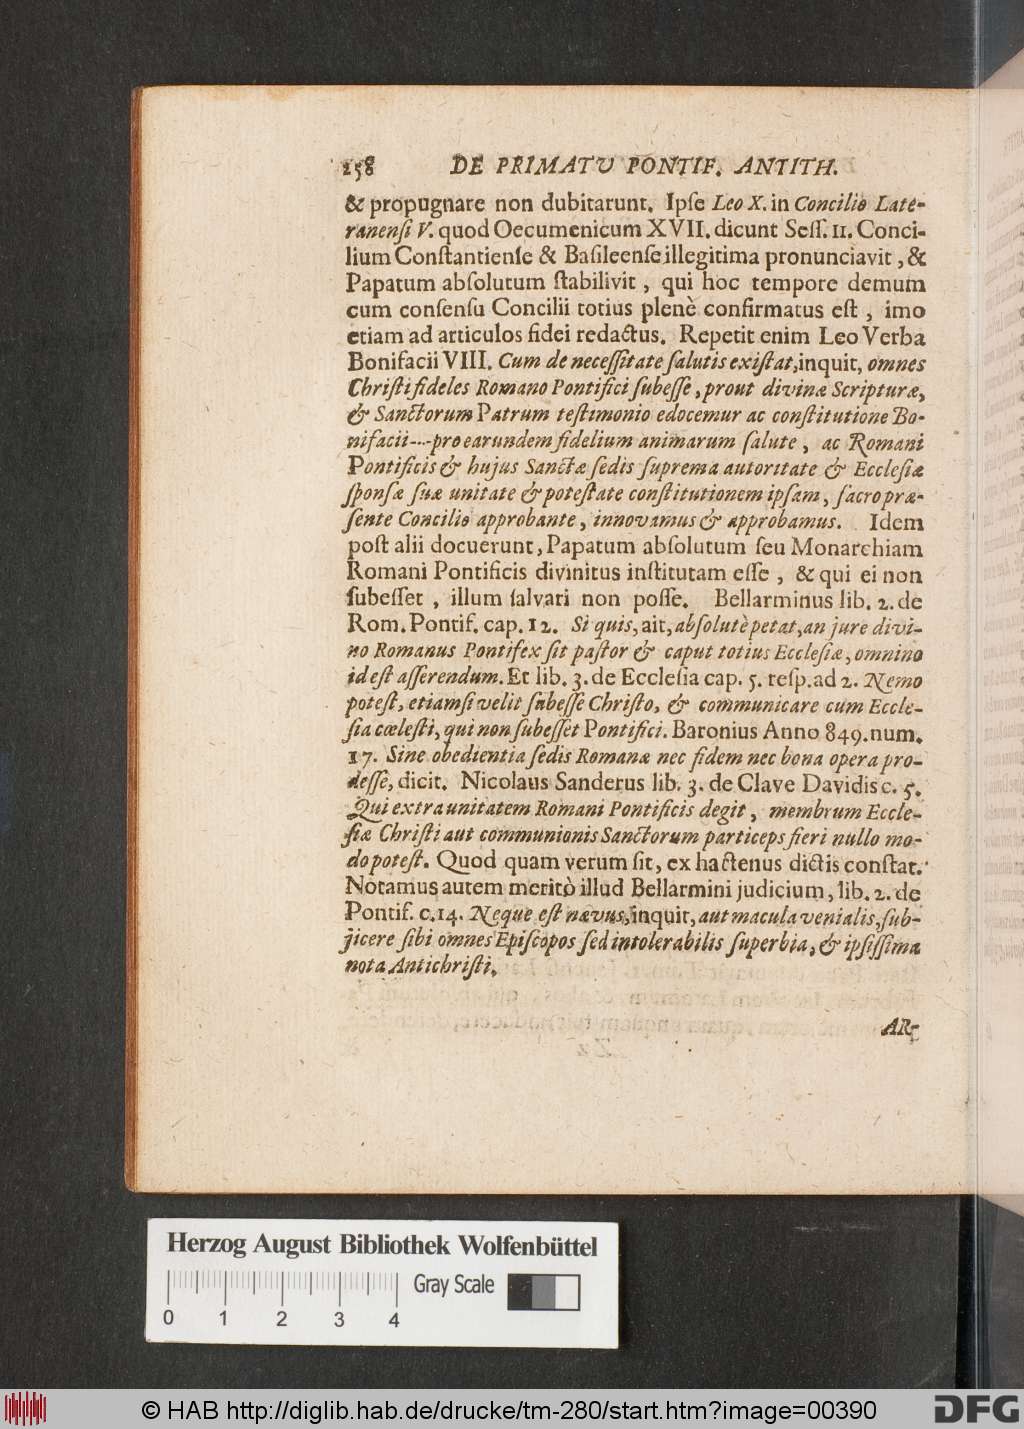 158 DE PRIMATU PONTIF. ANTITH.
& propugnare non dubitarunt. Ipſe Leo X. in Concilio Late-
ranenſi V. quod Oecumenicum XVII. dicunt Seſſ. 11. Conci-
lium Conſtantienſe & Baſileenſe illegitima pronunciavit, &
Papatum abſolutum ſtabilivit, qui hoc tempore demum
cum conſenſu Concilii totius plenè confirmatus eſt, imo
etiam ad articulos fidei redactus. Repetit enim Leo Verba
Bonifacii VIII. Cum de neceſſitate ſalutis exiſtat, inquit, omnes
Chriſti fideles Romano Pontifici ſubeſſe, prout divinæ Scripturæ,
& Sanctorum Patrum teſtimonio edocemur ac conſtitutione Bo-
nifacii---pro earundem fidelium animarum ſalute, ac Romani
Pontificis & hujus Sanctæ ſedis ſuprema autoritate & Eccleſiæ
ſponſæ ſuæ unitate & poteſtate conſtitutionem ipſam, ſacro præ-
ſente Concilio approbante, innovamus & approbamus. Idem
poſt alii docuerunt, Papatum abſolutum ſeu Monarchiam
Romani Pontificis divinitus inſtitutam eſſe, & qui ei non
ſubeſſet, illum ſalvari non poſſe. Bellarminus lib. 2. de
Rom. Pontif. cap. 12. Si quis, ait, abſolutè petat, an jure divi-
no Romanus Pontifex ſit paſtor & caput totius Eccleſiæ, omnino
id eſt aſſerendum. Et lib. 3. de Eccleſia cap. 5. reſp. ad 2. Nemo
poteſt, etiamſi velit ſubeſſe Chriſto, & communicare cum Eccle-
ſia cœleſti, qui non ſubeſſet Pontifici. Baronius Anno 849. num.
17. Sine obedientia ſedis Romanæ nec fidem nec bona opera pro-
deſſe, dicit. Nicolaus Sanderus lib. 3. de Clave Davidis c. 5.
Qui extra unitatem Romani Pontificis degit, membrum Eccle-
ſiæ Chriſti aut communionis Sanctorum particeps fieri nullo mo-
do poteſt. Quod quam verum ſit, ex hactenus dictis conſtat.
Notamus autem meritò illud Bellarmini judicium, lib. 2. de
Pontif. c. 14. Neque eſt nævus, inquit, aut macula venialis, ſub-
jicere ſibi omnes Epiſcopos ſed intolerabilis ſuperbia, & ipſiſſima
nota Antichriſti.
AR-
Herzog August Bibliothek Wolfenbüttel
Gray Scale
0 1 2 3 4
© HAB http://diglib.hab.de/drucke/tm-280/start.htm?image=00390
DFG